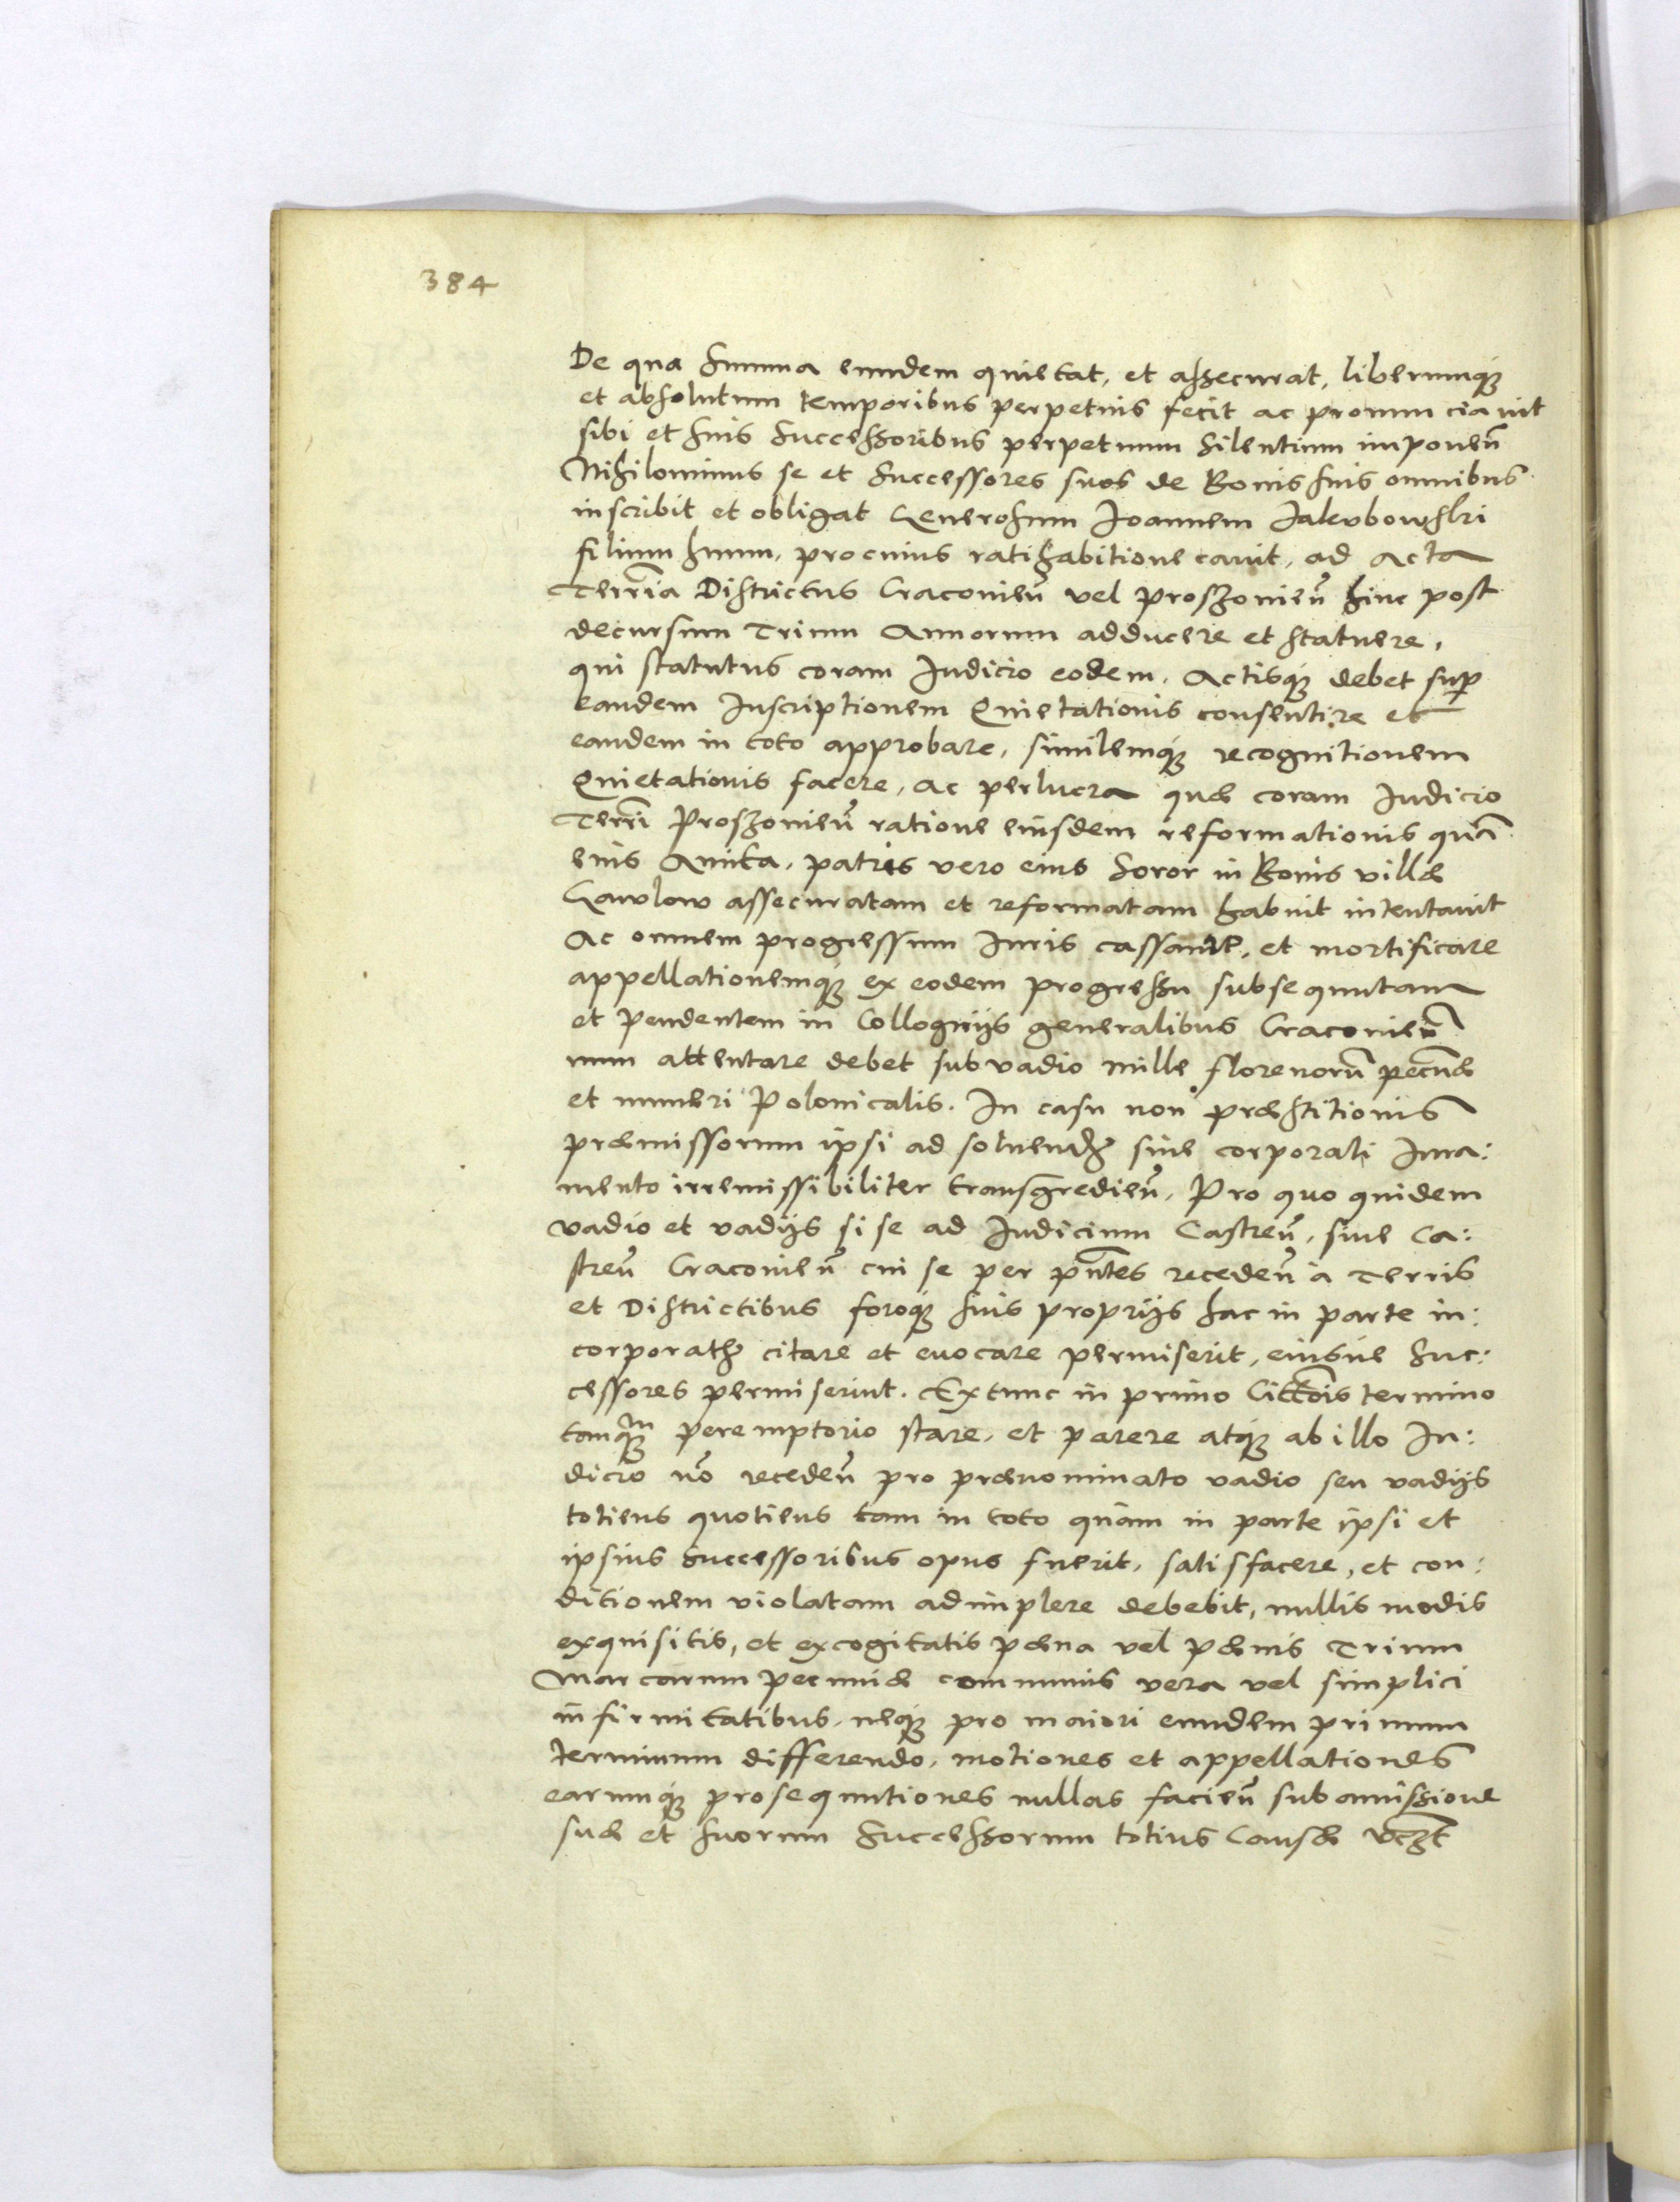 384
De qua summa eundem quietat, et assecurat, liberumq́
et absolutum temporibus perpetuis fecit ac pronunciauit
sibi et suis successoribus perpetuum silentium imponeñ
Nihilominus se et successores suos de Bonis suis omnibus
inscribit et obligat Generosum Joannem Jakubowski
filium suum, pro cuius ratihabitione cauit, ad Acta
Terrr̃ia Districtus Cracovieñ vel proszovieñ hinc post
decursum Trium Annorum adducere et statuere,
qui statutus coram Judicio eodem, Actisq́ debet sup̱
eandem Inscriptionem Quietationis consentire et
eandem in toto approbare, similemq́ recognitionem
Quietationis facere, ac per lucra quæ coram Judicio
Terrĩ Proszovieñ ratione eiusdem reformationis quã
eius Amita, patris vero eius soror in Bonis villæ
Gawlow assecuratam et reformatam habuit intentauit
Ac omnem progressum Iuris cassare, et mortificare
appellationemq́ ex eodem progressu subsequutam
et pendentem in Colloquijs generalibus Cracovieñ
non attentare debet sub vadio mille florenorũ pecũæ
et numeri Polonicalis. In casu non præstitionis
præmissorum ipsi ad soluend̃ sine corporali Iura:
mento irremissibiliter transgredieñ, Pro quo quidem
vadio et vadijs si se ad Judicium Castreñ, siue Ca:
streñ Cracovieñ cui se per pñtes recedeñ a Terris
et Districtibus foroq́ suis proprijs hac in parte in:
corporat̃ citare et euocare permiserit, eiusue suc:
cessores permiserint. Extunc in primo Citt̃ois termino
tanq̃ peremptorio stare, et parere atq́ ab illo Iu:
dicio nõ recedeñ pro prænominato vadio seu vadijs
totiens quotiens tam in toto quàm in parte ipsi et
ipsius successoribus opus fuerit, satisfacere, et con:
ditionem violatam adimplere debebit, nullis modis
exquisitis, et excogitatis pæna vel pænis Trium
Marcarum pecuniæ communis vera vel simplici
infirmitatibus, neq́ pro maiori eundem primum
terminum differendo, motiones et appellationes
earumq́ prosequutiones nullas facieñ sub amissione
suæ et suorum successorum totius Causæ